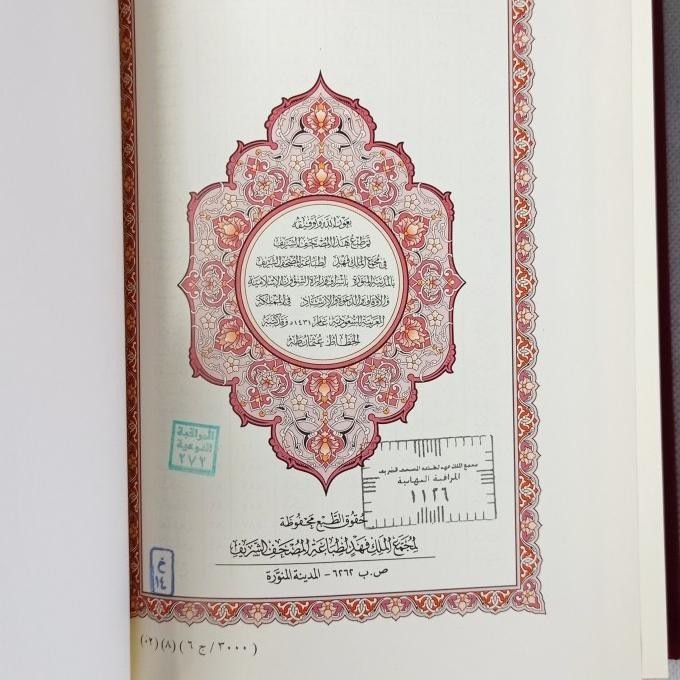 بعون الله وتوفيقه
تم طبع هذا المصحف الشريف
في مجمع الملك فهد لطباعة المصحف الشريف
بالمدينة المنورة بإشراف وزارة الشؤون الإسلامية
والأوقاف والدعوة والإرشاد في المملكة
العربية السعودية عام ١٤٣١ه وقد كتبه
الخطاط عثمان طه
المراقبة
النوعية
٢٧٢
مجمع الملك فهد لطباعة المصحف الشريف
المراقبة النهائية
١١٢٦
حقوق الطبع محفوظة
لمجمع الملك فهد لطباعة المصحف الشريف
ص.ب ٦٢٦٢ - المدينة المنورة
خ
١٤
( ٣٠٠٠ / ج ٦ ) (٨) (٠٢)